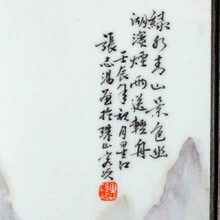 綠水青山景色幽
湖濱煙雨送輕舟
壬辰年秋月里江
張志湯畫於珠山客次